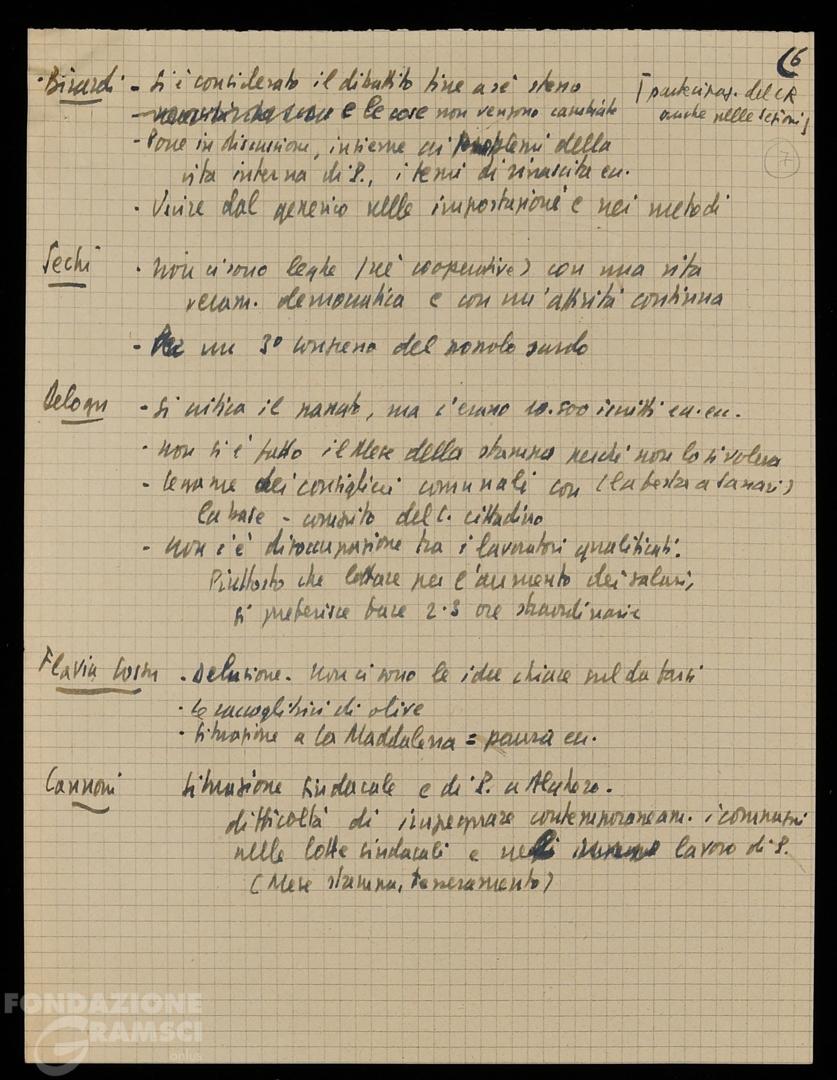 6
7
· Birardi - Si è considerato il dibattito fine a sé stesso [partecipaz. del CR
- e le cose non vengono cambiate anche nelle sezioni]
- Porre in discussione, insieme ai problemi della
vita interna di P., i temi di rinascita ec.
· Uscire dal generico nelle impostazioni e nei metodi
Sechi · Non ci sono leghe (né cooperative) con una vita
veram. democratica e con un'attività continua
- Per un 3º congresso del popolo sardo
Delogu - Si critica il passato, ma c'erano 10.500 iscritti ec. ec.
· Non si è fatto il Mese della stampa perché non lo si voleva
- legame dei consiglieri comunali con (la festa a Sassari)
la base - compito del C. cittadino
- Non c'è disoccupazione tra i lavoratori qualificati.
Piuttosto che lottare per l'aumento dei salari,
si preferisce fare 2-3 ore straordinarie
Flavia Cossu · Delusione. Non ci sono le idee chiare sul da farsi
· Le raccoglitrici di olive
· Situazione a La Maddalena = paura ec.
Cannoni Situazione sindacale e di P. a Alghero.
difficoltà di impegnare contemporaneam. i compagni
nelle lotte sindacali e nel lavoro di P.
(Mese stampa, tesseramento)
FONDAZIONE
GRAMSCI
onlus